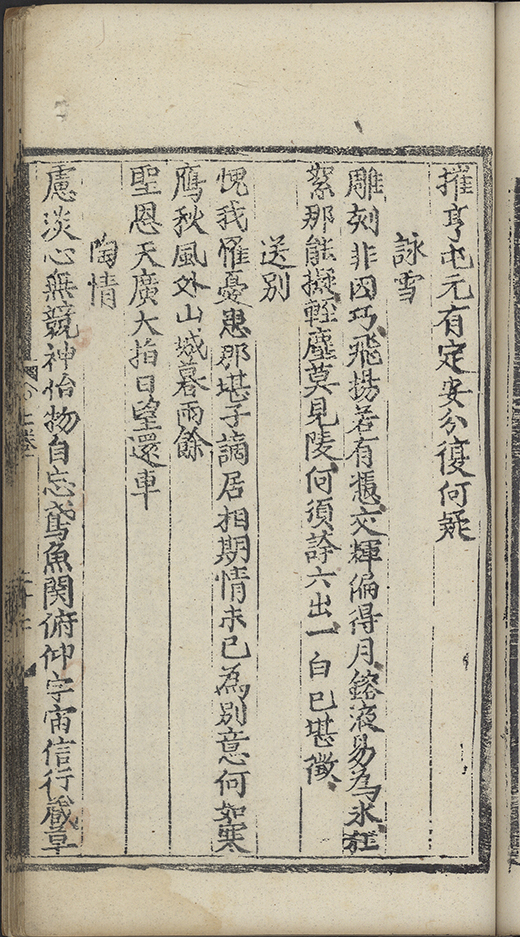 摧亨屯元有定安分復何疑
詠雪
雕刻非因巧飛揚若有憑交輝偏得月鎔液易為氷狂
絮那能擬輕塵莫見陵何須詮六出一白已堪徵
送別
愧我罹憂患那堪子謫居相期情未已為別意何如寒
鴈秋風外山城暮雨餘
聖恩天廣大指日望還車
陶情
慮淡心無競神怡物自忘鳶魚関俯仰宇宙信行蔵草
上卷